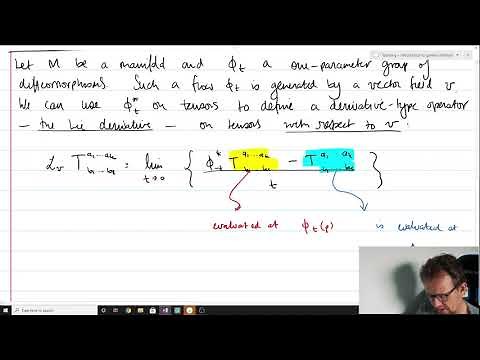 Let M be a manifold and ϕ_t a one-parameter group of
diffeomorphisms. Such a flow ϕ_t is generated by a vector field v
We can use ϕ_t^* on tensors to define a derivative-type operator
— the Lie derivative — on tensors with respect to v:
L_v T^{a_1...a_k}_{b_1...b_l} = lim_{t→0} { ϕ_{-t}^* T^{a_1...a_k}_{b_1...b_l} - T^{a_1 a_k}_{b_1 b_l} / t }
evaluated at ϕ_t(p) is evaluated at
Type here to search